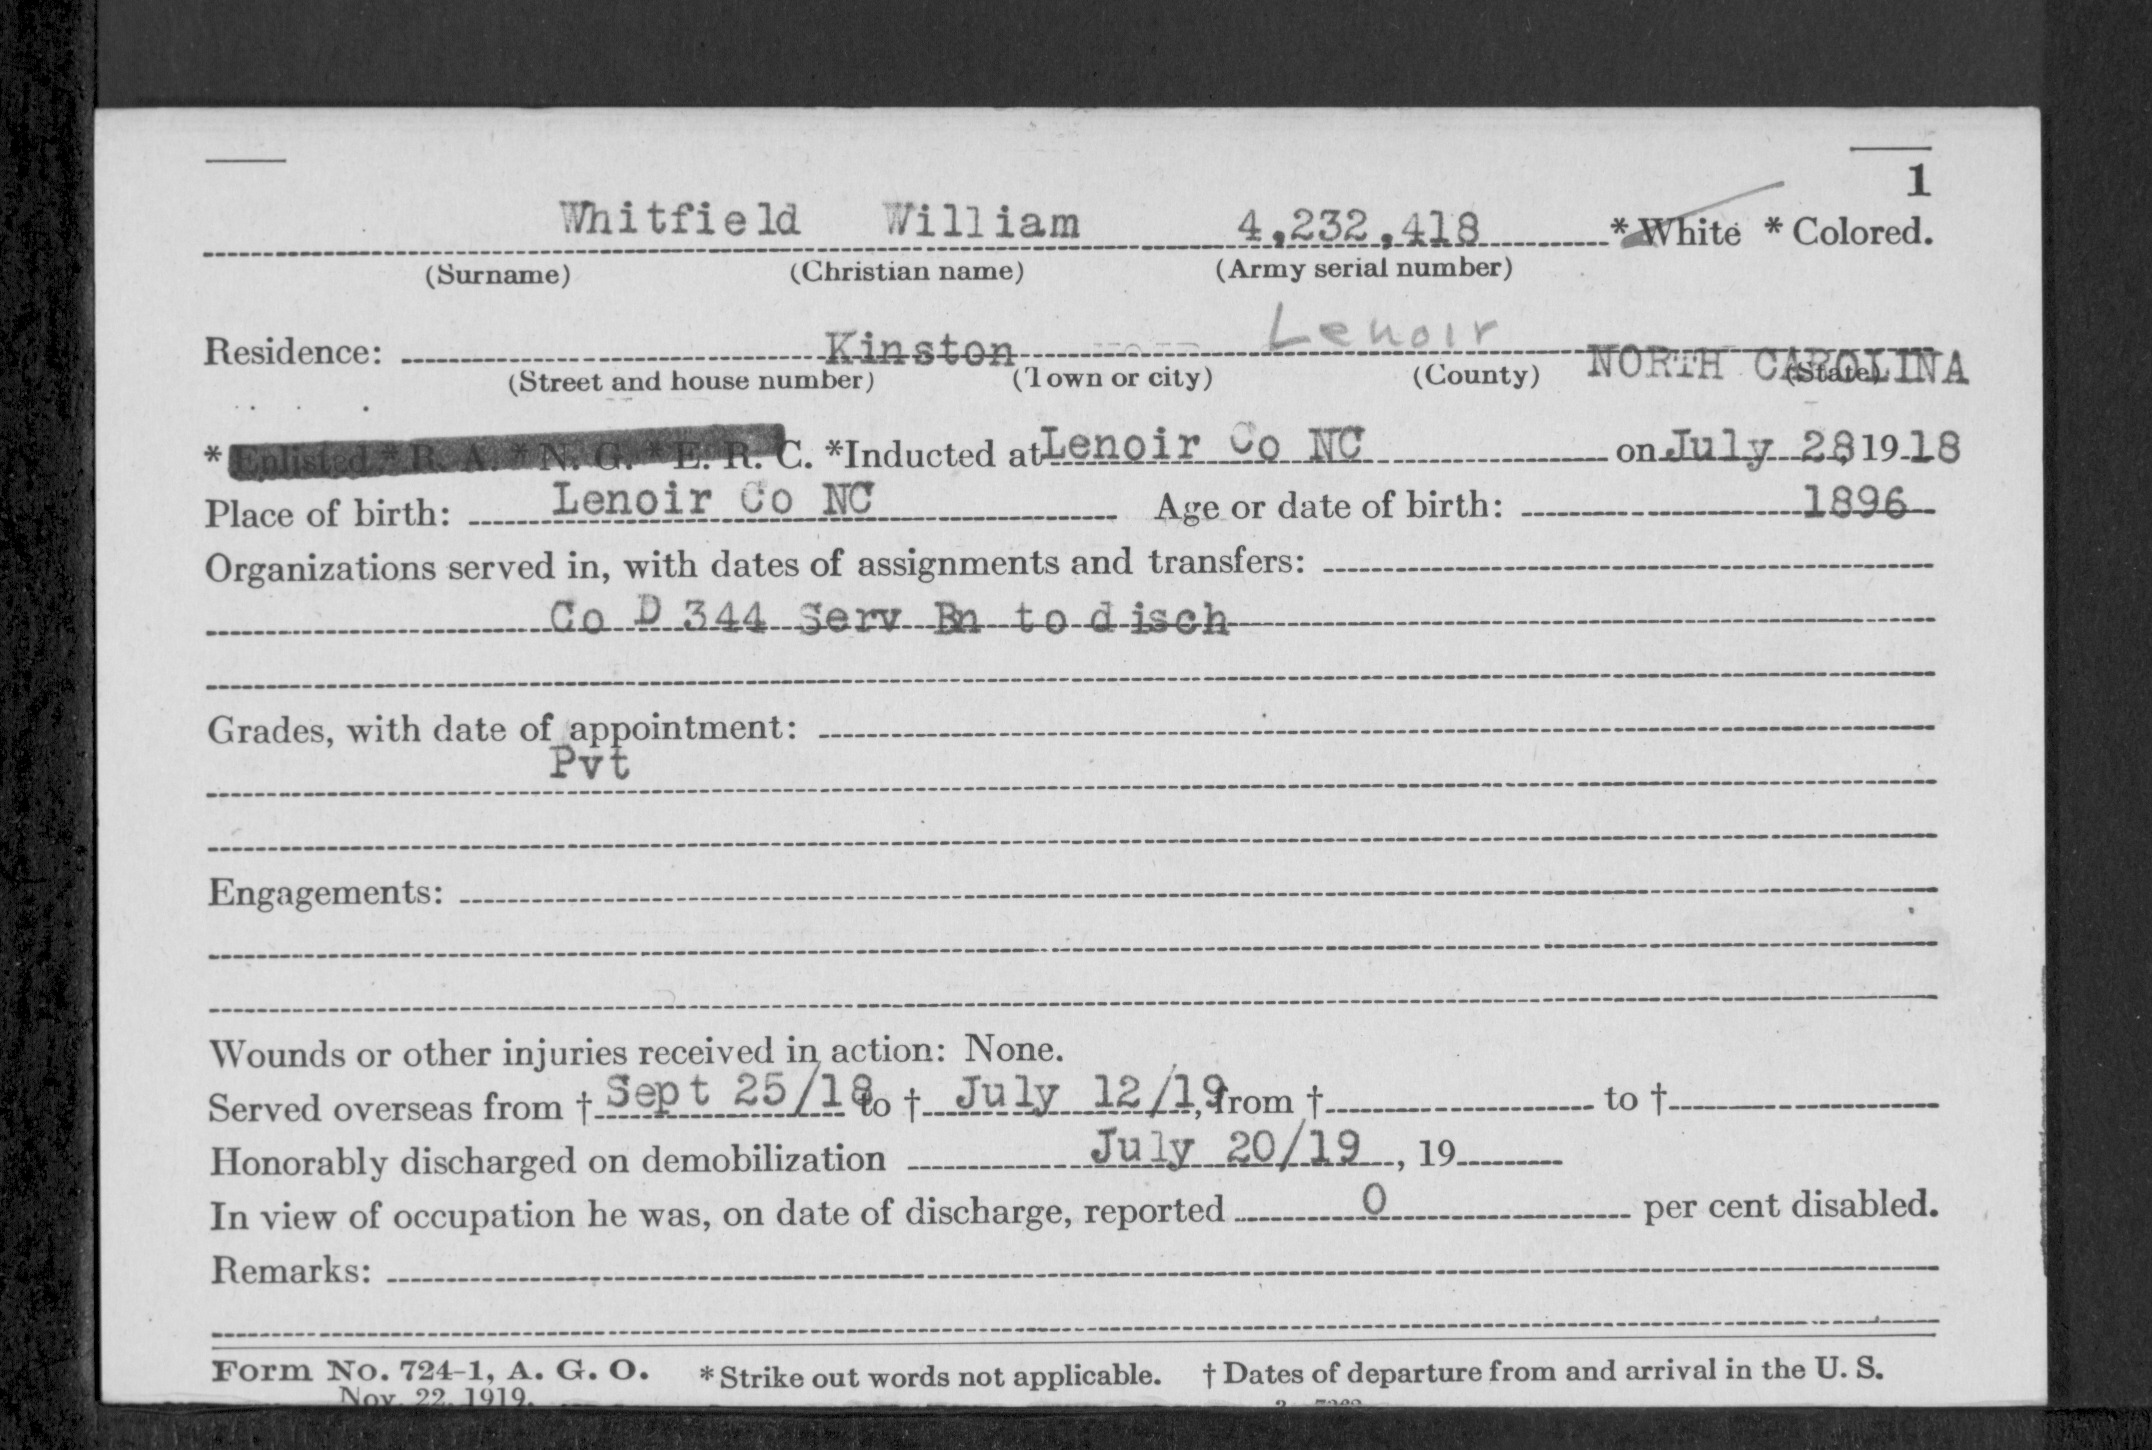 1
Whitfield William 4,232,418 * White * Colored.
(Surname) (Christian name) (Army serial number)
Residence: Kinston Lenoir NORTH CAROLINA
(Street and house number) (Town or city) (County) (State)
* Enlisted * R. A. * N. G. * E. R. C. *Inducted at Lenoir Co NC on July 28, 1918
Place of birth: Lenoir Co NC Age or date of birth: 1896
Organizations served in, with dates of assignments and transfers:
Co D 344 Serv Bn to disch
Grades, with date of appointment:
Pvt
Engagements:
Wounds or other injuries received in action: None.
Served overseas from † Sept 25/18 to † July 12/19, from † to †
Honorably discharged on demobilization July 20/19, 19
In view of occupation he was, on date of discharge, reported 0 per cent disabled.
Remarks:
Form No. 724-1, A. G. O. * Strike out words not applicable. † Dates of departure from and arrival in the U. S.
Nov. 22, 1919.